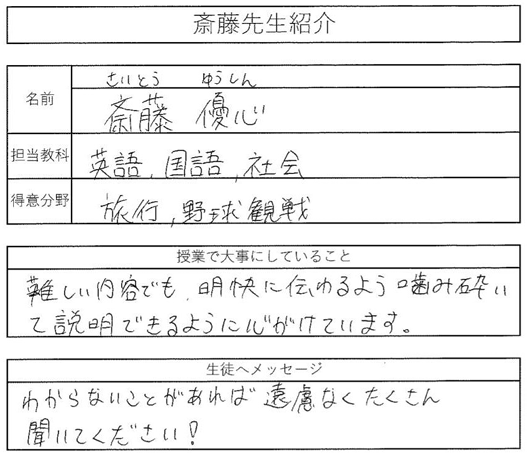 斎藤先生紹介
さいとう ゆうしん
名前
斎藤 優心
担当教科
英語,国語,社会
得意分野
旅行,野球観戦
授業で大事にしていること
難しい内容でも、明快に伝わるよう噛み砕い
て説明できるように心がけています。
生徒へメッセージ
わからないことがあれば遠慮なくたくさん
聞いてください!